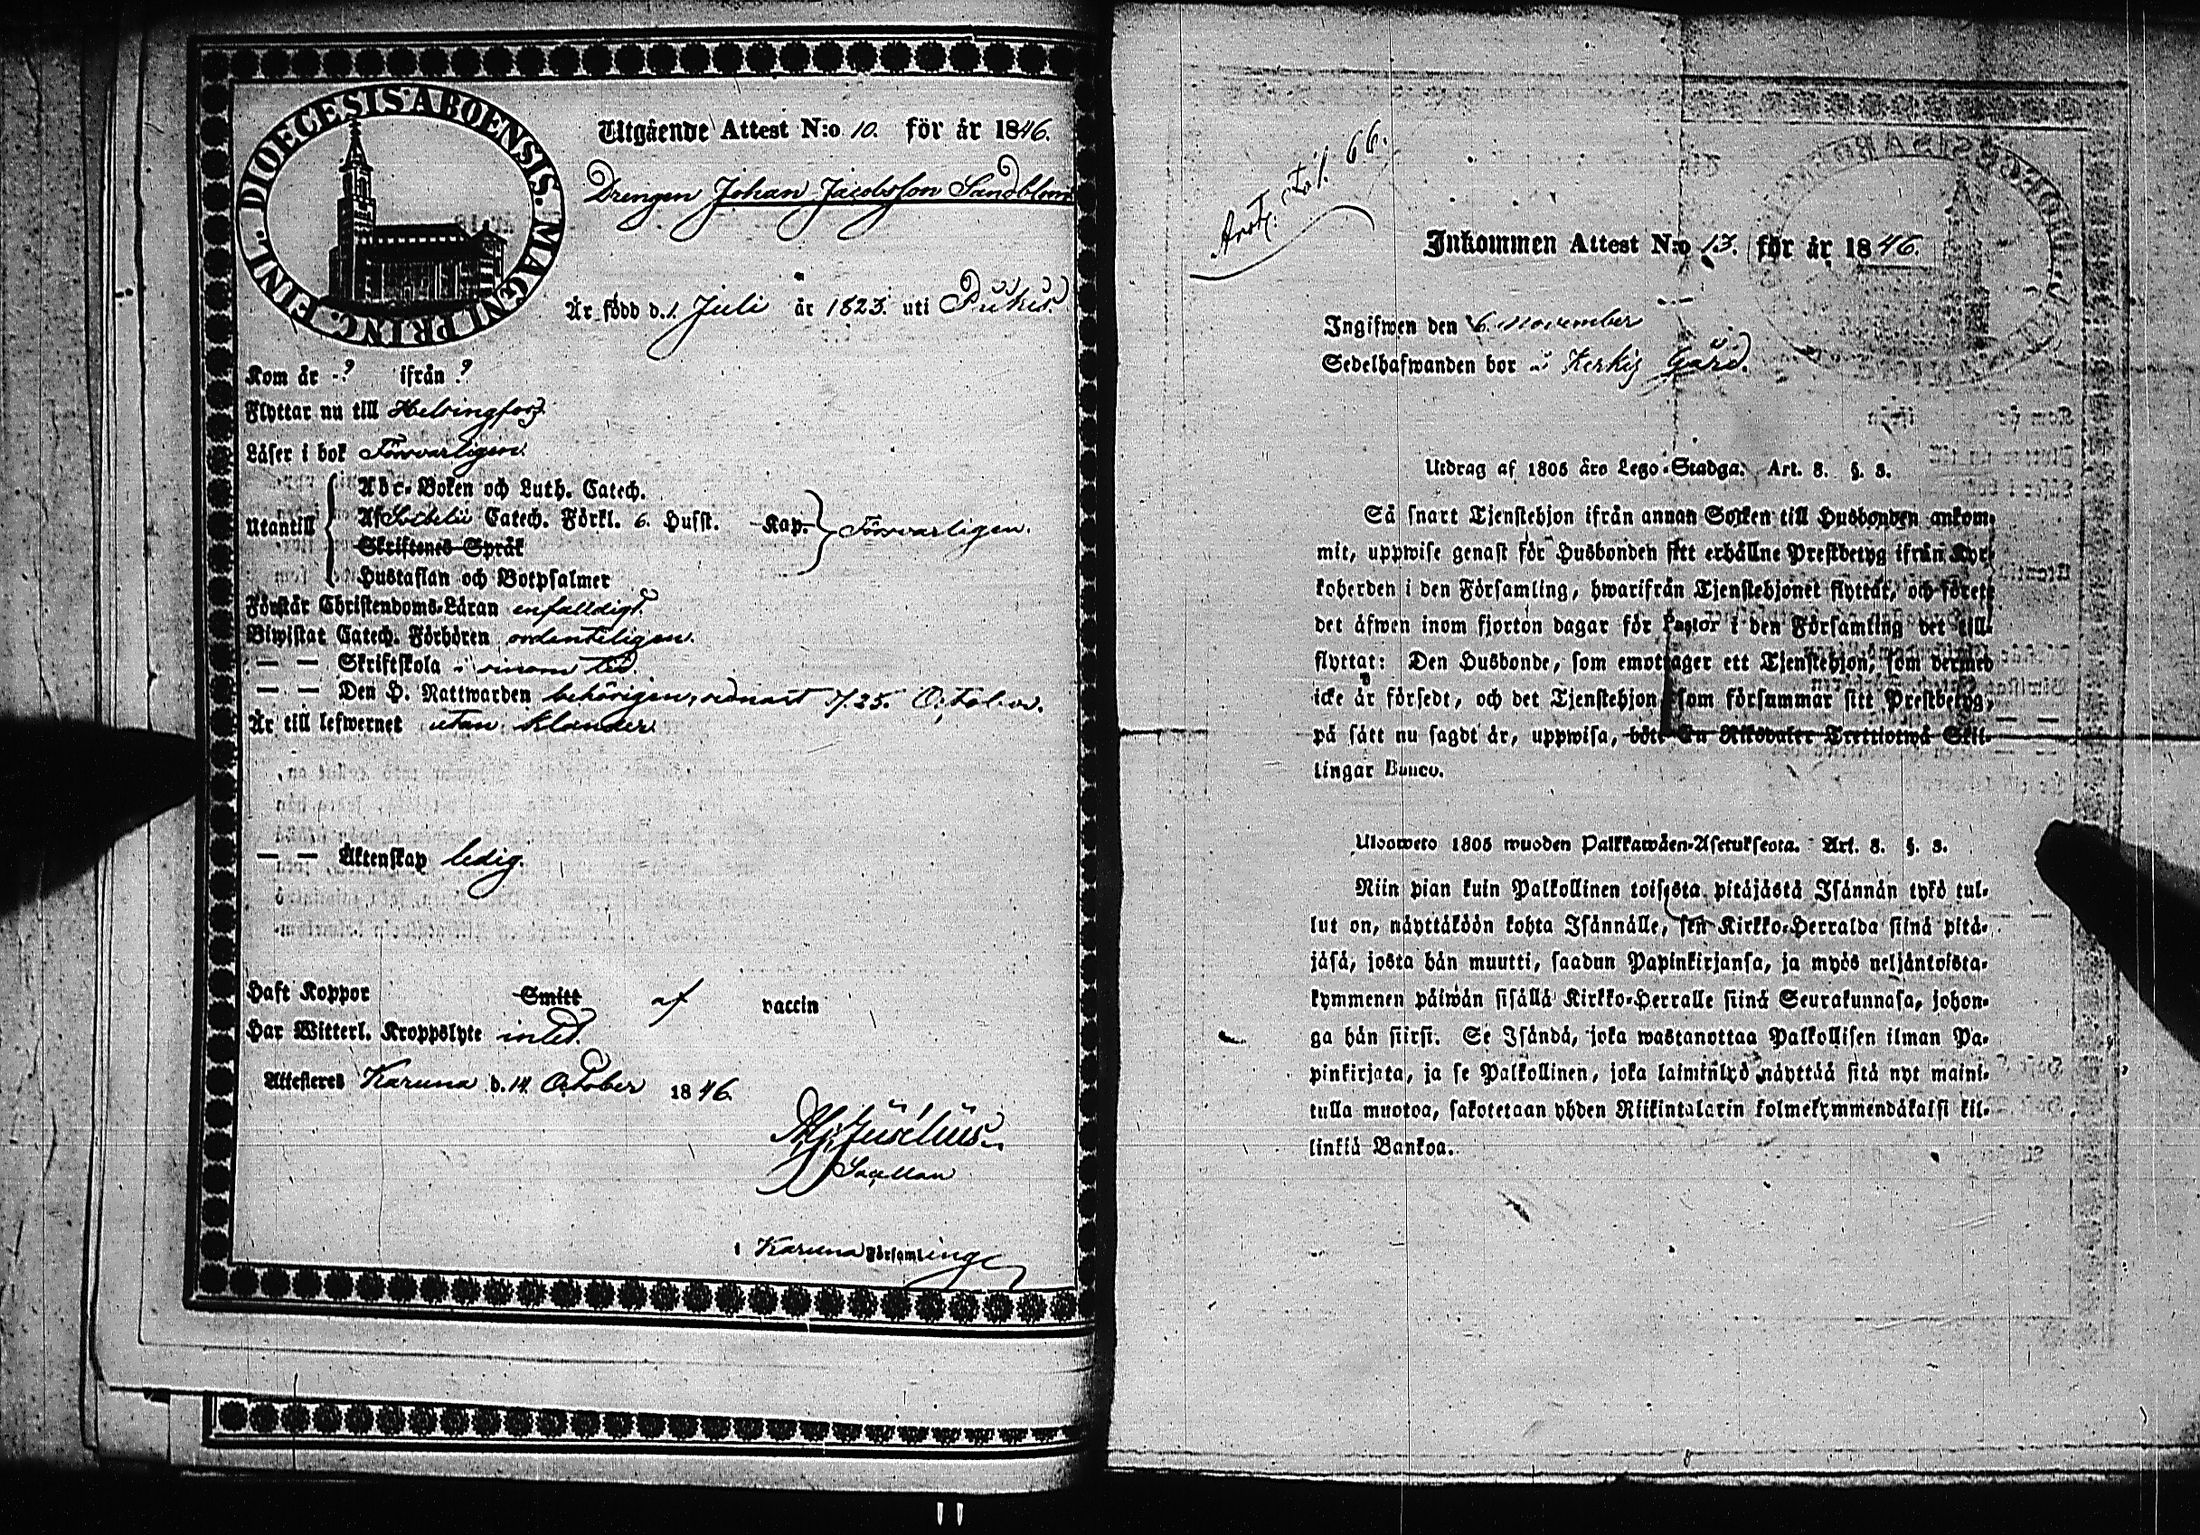 FINL. DIOECESIS ABOENSIS. MAGNI PRINC.
Utgående Attest N:o 10. för år 1846.
Drengen Johan Jacobsson Sandblom
Är född d. 1 Juli år 1823. uti Pikis.
Kom år ? ifrån ?
Flyttar nu till Helsingfors
Läser i bok Försvarligen.
Utantill
Abc-Boken och Luth. Catech.
Af Svebelii Catech. Förkl. 6. Husst. Kap. Försvarligen.
Skriftenes Språk
Hustaflan och Botpsalmer
Förstår Christendoms-Läran enfalldigt.
Biwistat Catech. Förhören ordenteligen.
— — Skriftskola i sinom tid.
— — Den H. Nattwarden behörigen, sednast d. 25. October.
Är till lefwernet utan klander.
— — Äktenskap ledig.
Haft Koppor Smitt af vaccin
Har Witterl. Kroppslyte intet.
Attesteras Karuna d. 14. October 1846.
Sacellan
i Karuna Församling
Fol. 66.
Inkommen Attest N:o 13. för år 1846.
Ingifwen den 6. november
Sedelhafwanden bor å Kerkis Gård.
Utdrag af 1805 års Lego-Stadga. Art. 8. §. 3.
Så snart Tjenstehjon ifrån annan Socken till Husbonden ankom-
mit, uppwise genast för Husbonden sitt erhållne Prestbetyg ifrån Kyr-
koherden i den Församling, hwarifrån Tjenstehjonet flyttat, och förete
det äfwen inom fjorton dagar för Pastor i den Församling det till-
flyttat: Den Husbonde, som emottager ett Tjenstehjon, som dermed
icke är försedt, och det Tjenstehjon som försummar sitt Prestbetyg,
på sätt nu sagdt är, uppwisa, böte En Riksdaler Trettiotwå Skil-
lingar Banco.
Ulosweto 1805 wuoden Palkkawäen-Asetuksesta. Art. 8. §. 3.
Niin pian kuin Palkollinen toisesta pitäjästä Isännän tykö tul-
lut on, näyttäköön kohta Isännälle, sen Kirkko-Herralda siinä pitä-
jäsä, josta hän muutti, saadun Papinkirjansa, ja myös neljäntoista-
kymmenen päiwän sisällä Kirkko-Herralle siinä Seurakunnasa, johon-
ga hän siirsi. Se Isändä, joka wastanottaa Palkollisen ilman Pa-
pinkirjata, ja se Palkollinen, joka laiminlyö näyttää sitä nyt maini-
tulla muotoa, sakotetaan yhden Riikintalarin kolmekymmendäkaksi kil-
linkiä Bankoa.